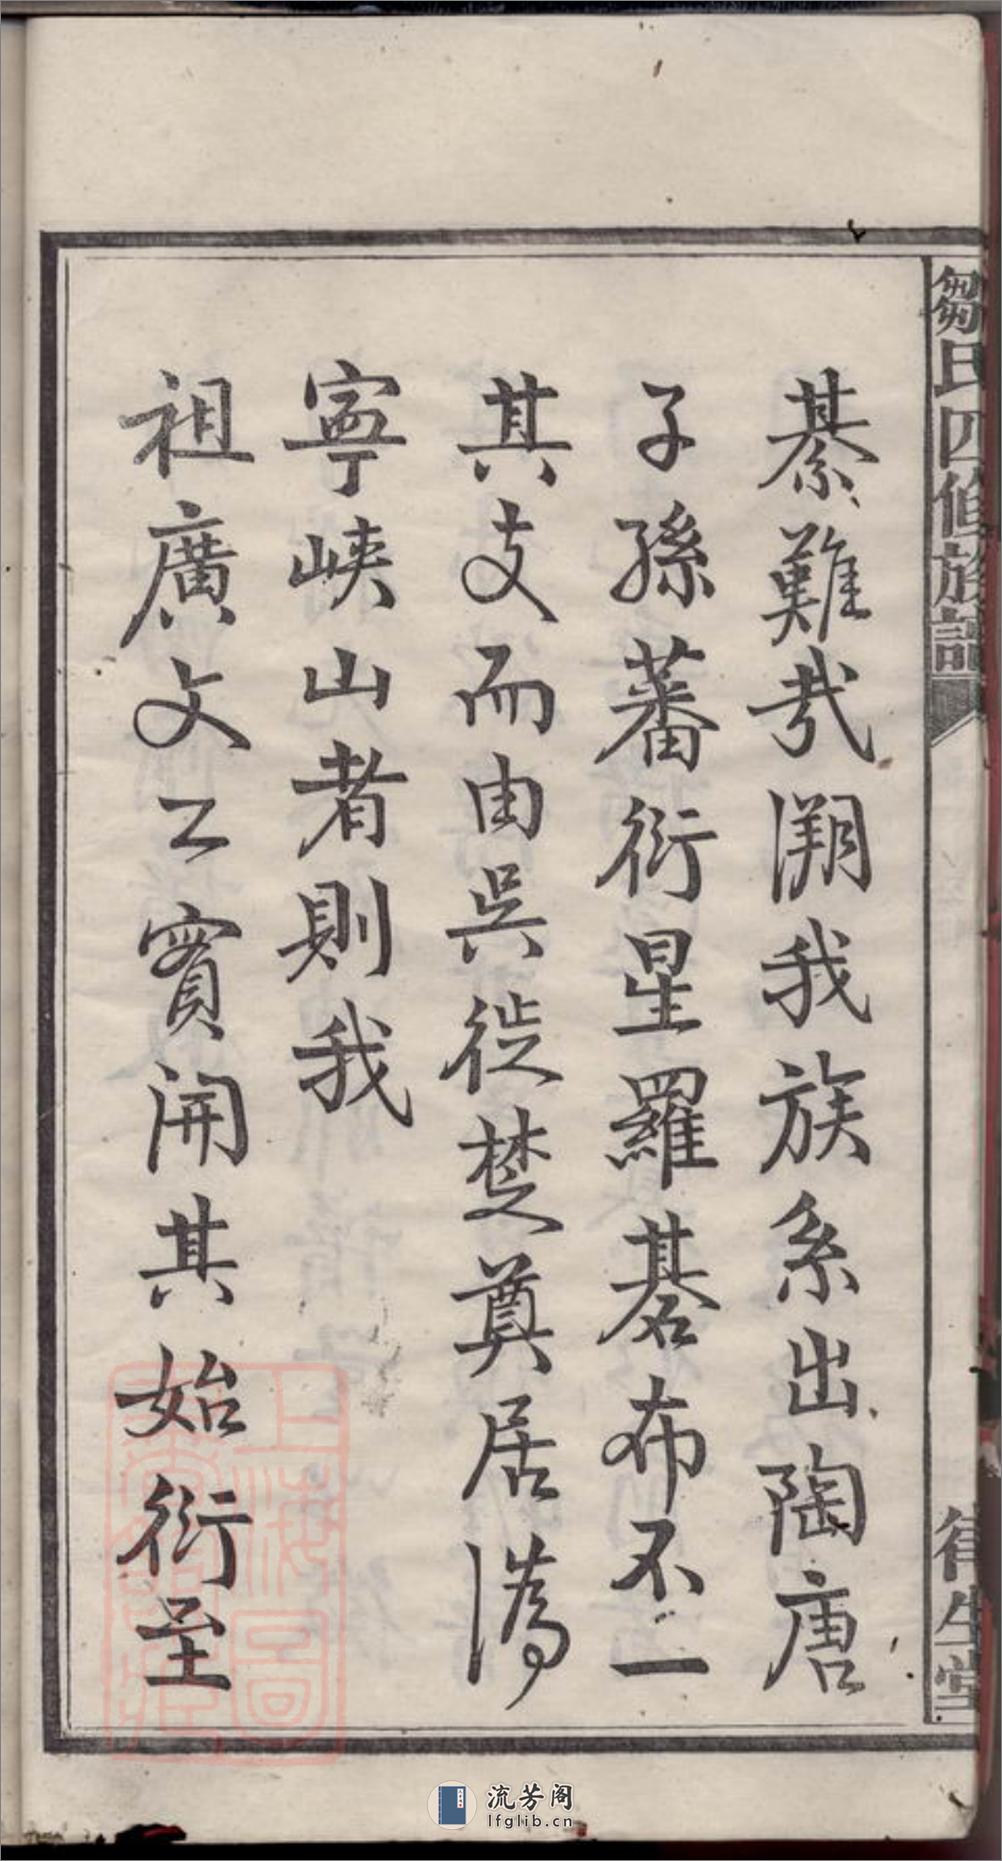 鄒氏四修族譜
綦難哉溯我族系出陶唐
子孫蕃衍星羅碁布不一
其支而由吳徙楚奠居溈
寧峽山者則我
祖廣文公實開其始衍至
生堂
上海圖
流芳阁
lfglib.cn